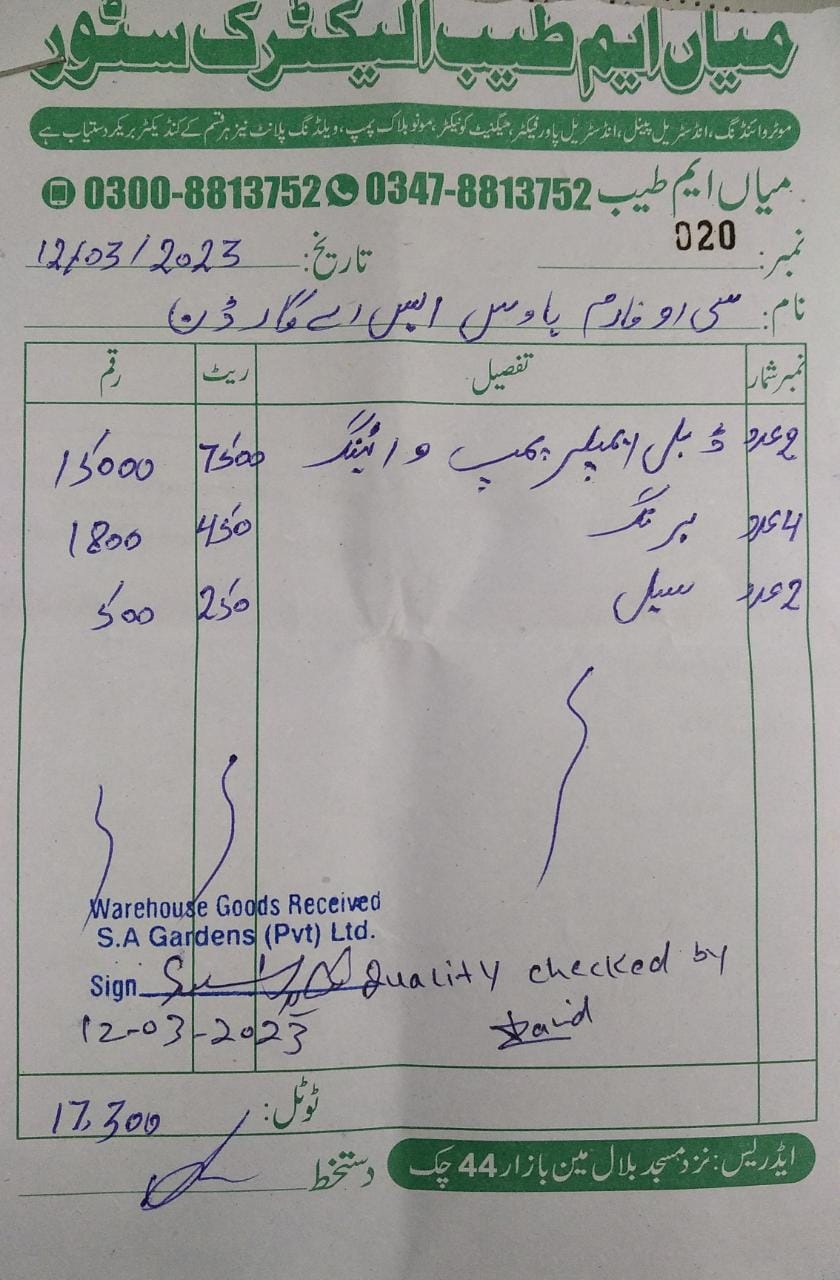 میاں ایم طیب الیکٹرک سٹور
موٹر وائنڈنگ، انڈسٹریل پینل، انڈسٹریل پاور فیکٹر، میگنیٹ کونیکٹر، مونو بلاک پمپ، ویلڈنگ پلانٹ نیز ہر قسم کے کنڈیکٹر بریکر دستیاب ہے
میاں ایم طیب 0347-8813752 0300-8813752
نمبر: 020 تاریخ: 12/03/2023
نام: سی او فارم ہاوس ایس اے گارڈن
نمبر شمار تفصیل ریٹ رقم
2عدد ڈبل ایمپلر پمپ وائینگ 7500 15000
4عدد برنگ 450 1800
2عدد سیل 250 500
Warehouse Goods Received
S.A Gardens (Pvt) Ltd.
Sign Quality checked by
12-03-2023
ٹوٹل: 17,300
دستخط
ایڈریس: نزد مسجد بلال مین بازار 44 چک